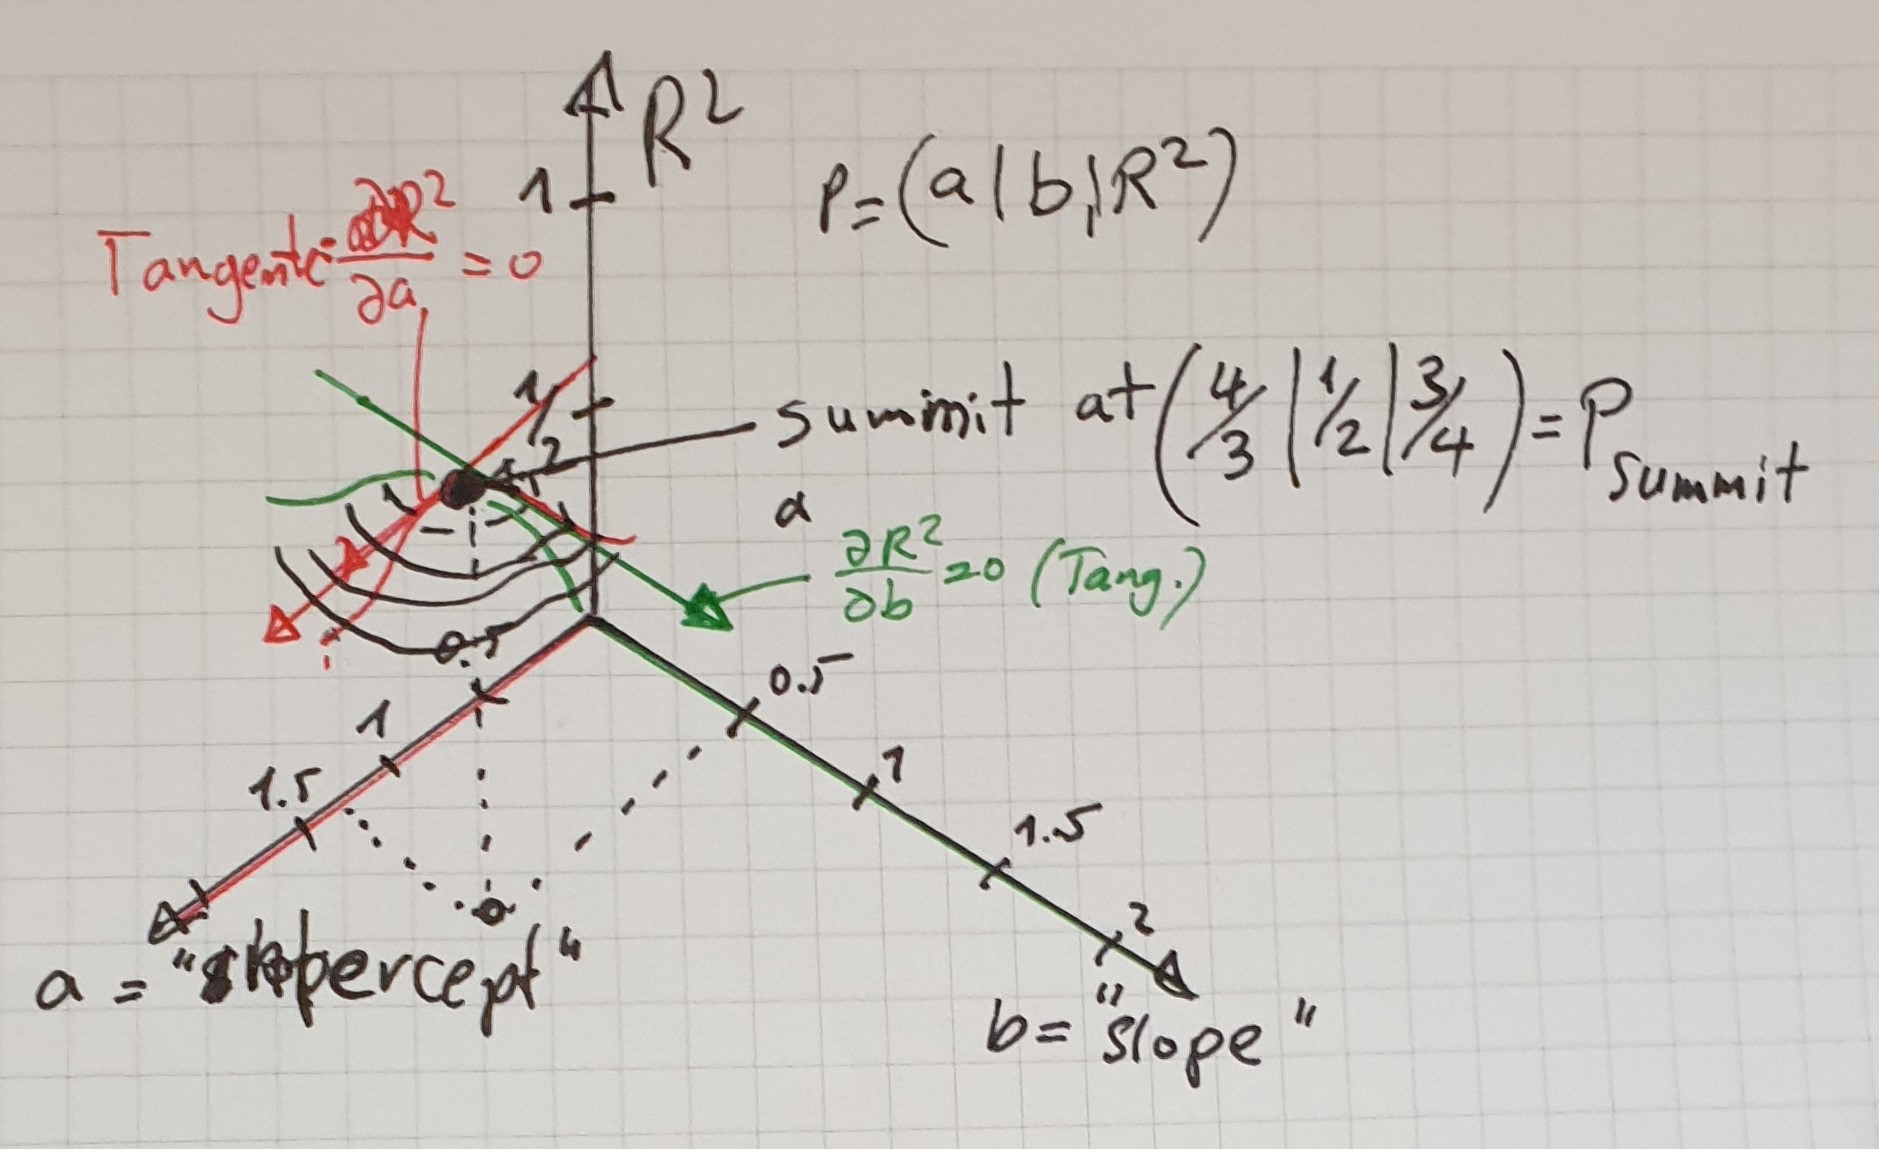 R²
1
P=(a|b|R²)
Tangente ∂R²/∂a =0
1/2
summit at (4/3|1/2|3/4)=P summit
∂R²/∂b =0 (Tang.)
0.5
0.5
1
1
1.5
1.5
2
a = "intercept"
b= "slope"